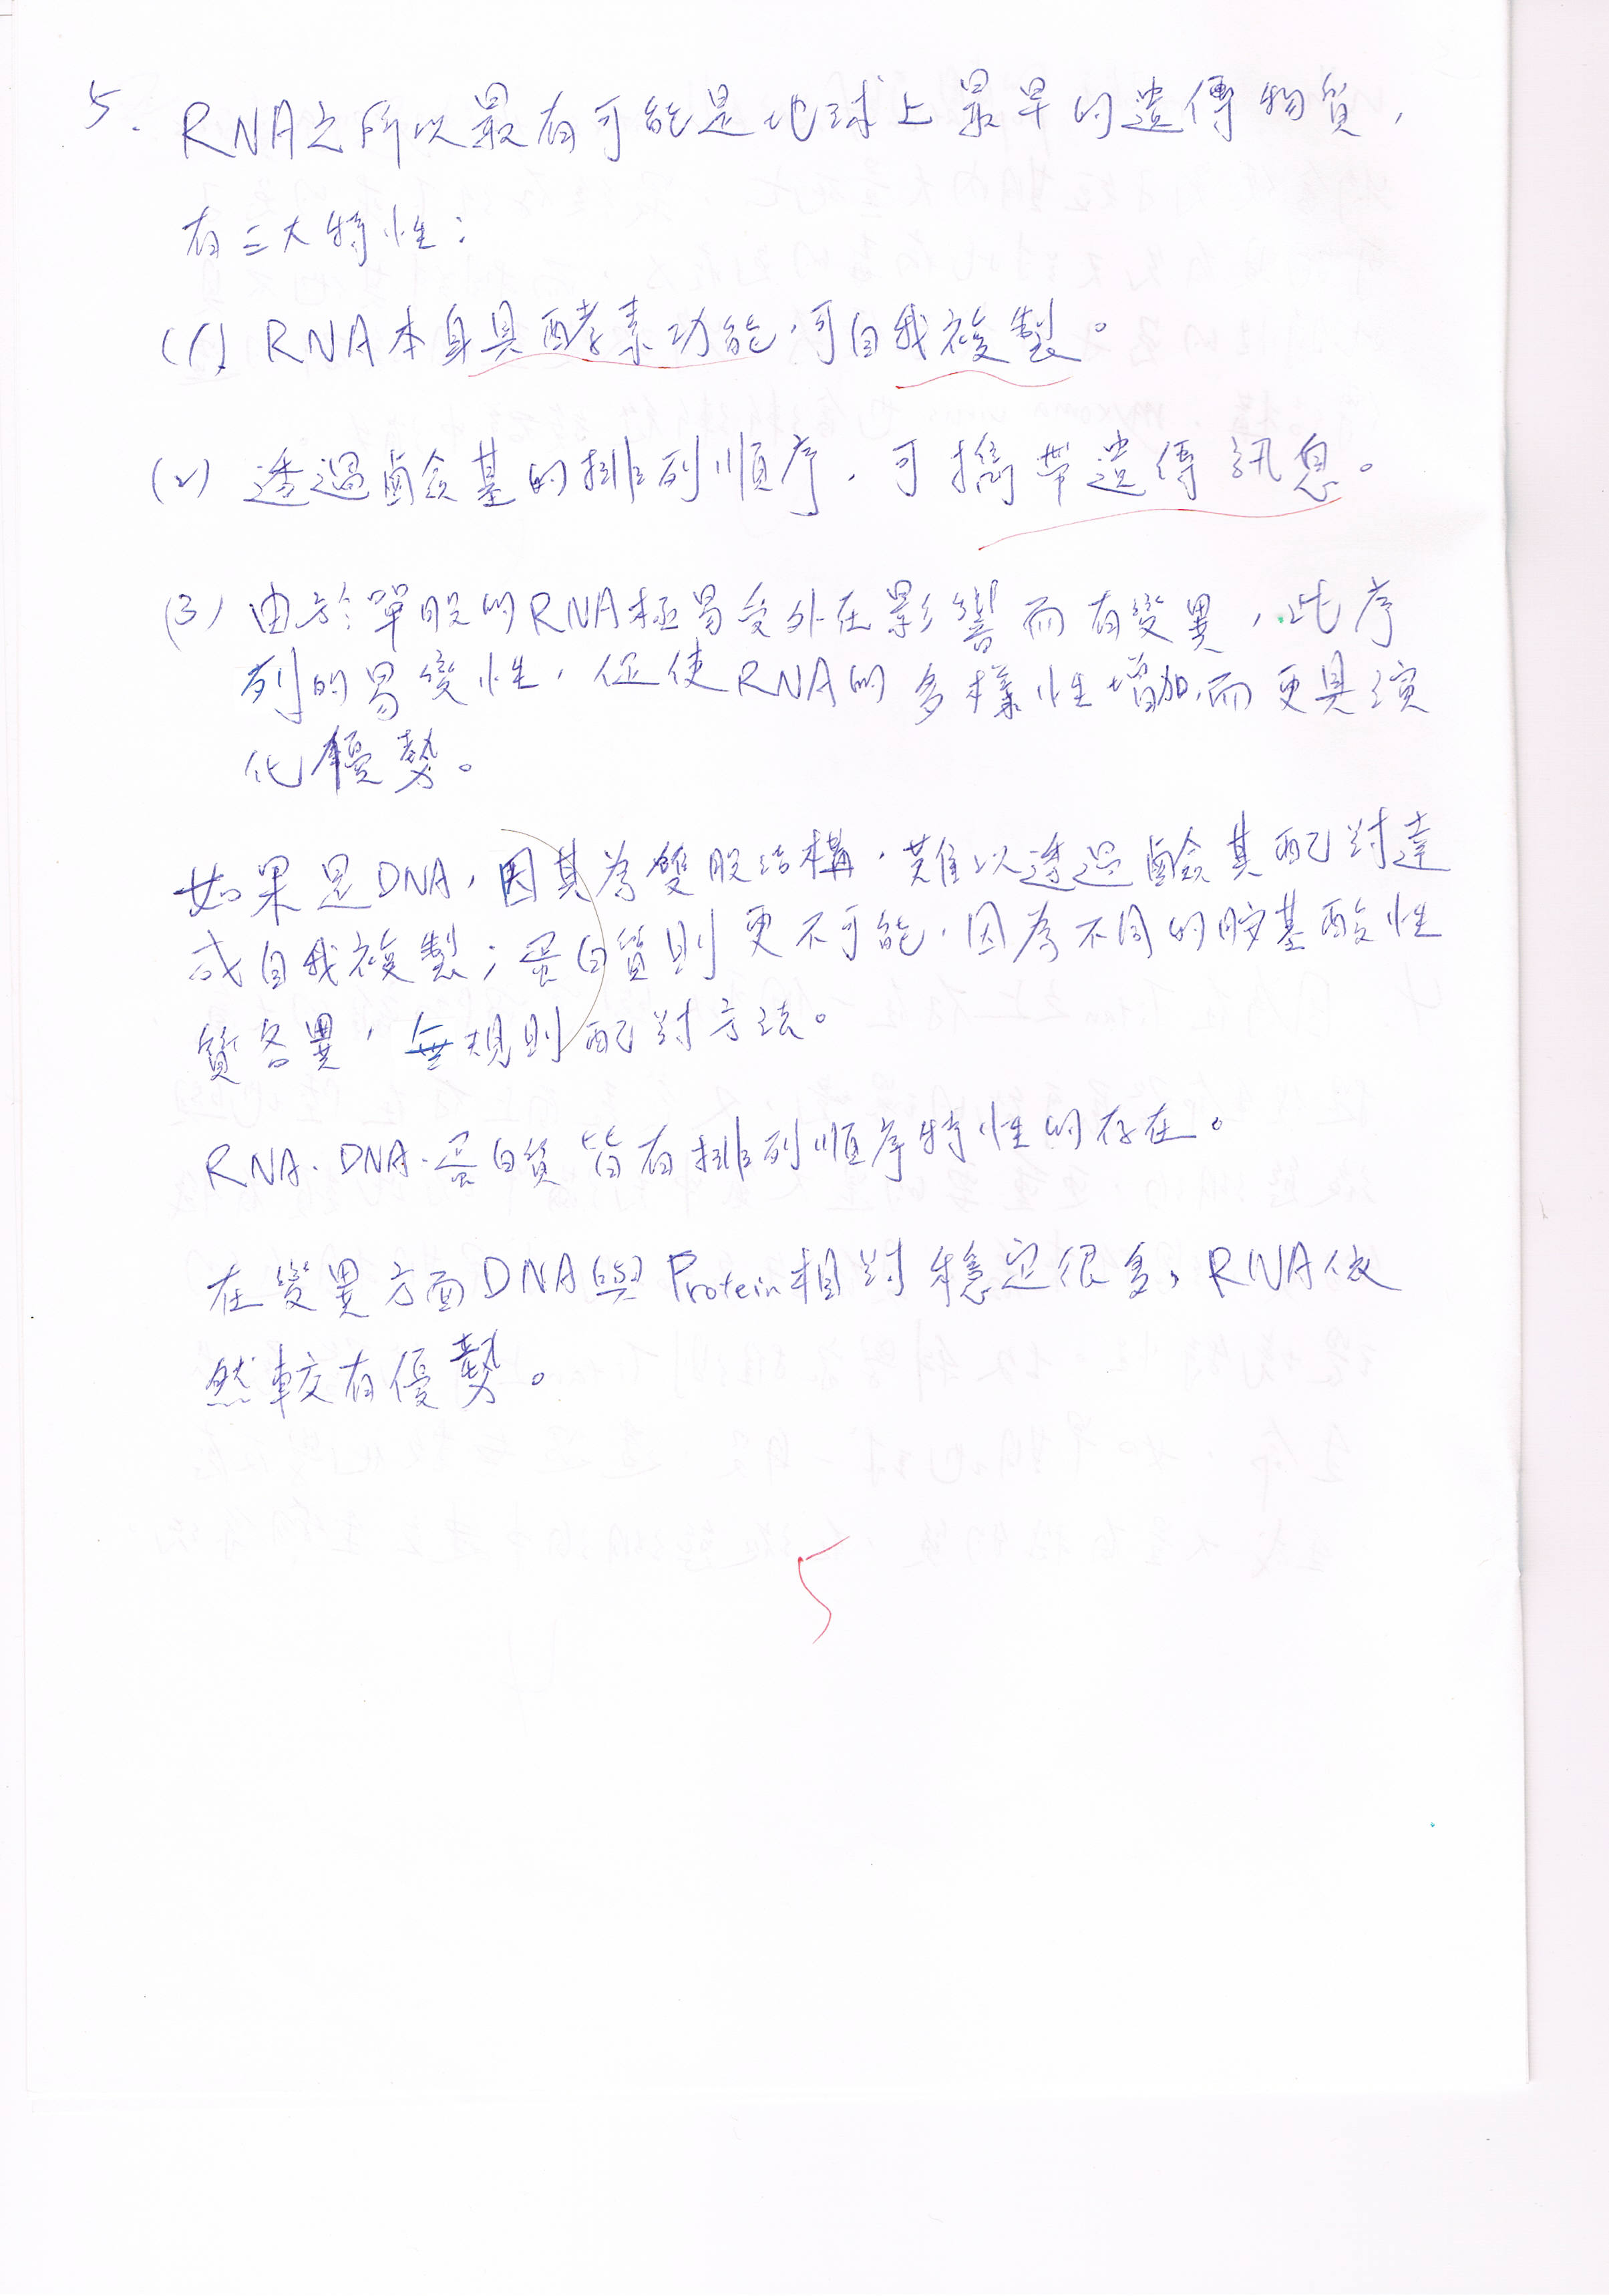 5. RNA之所以最有可能是地球上最早的遺傳物質，
有三大特性：
(1) RNA本身具酵素功能，可自我複製。
(2) 透過鹼基的排列順序，可攜帶遺傳訊息。
(3) 由於單股的RNA極易受外在影響而有變異，此序
列的易變性，促使RNA的多樣性增加，而更具演
化優勢。
如果是DNA，因其為雙股結構，難以透過鹼基配對達
成自我複製；蛋白質則更不可能，因為不同的胺基酸性
質各異，無規則配對方法。
RNA、DNA、蛋白質皆有排列順序特性的存在。
在變異方面DNA與Protein相對穩定很多，RNA依
然較有優勢。
5